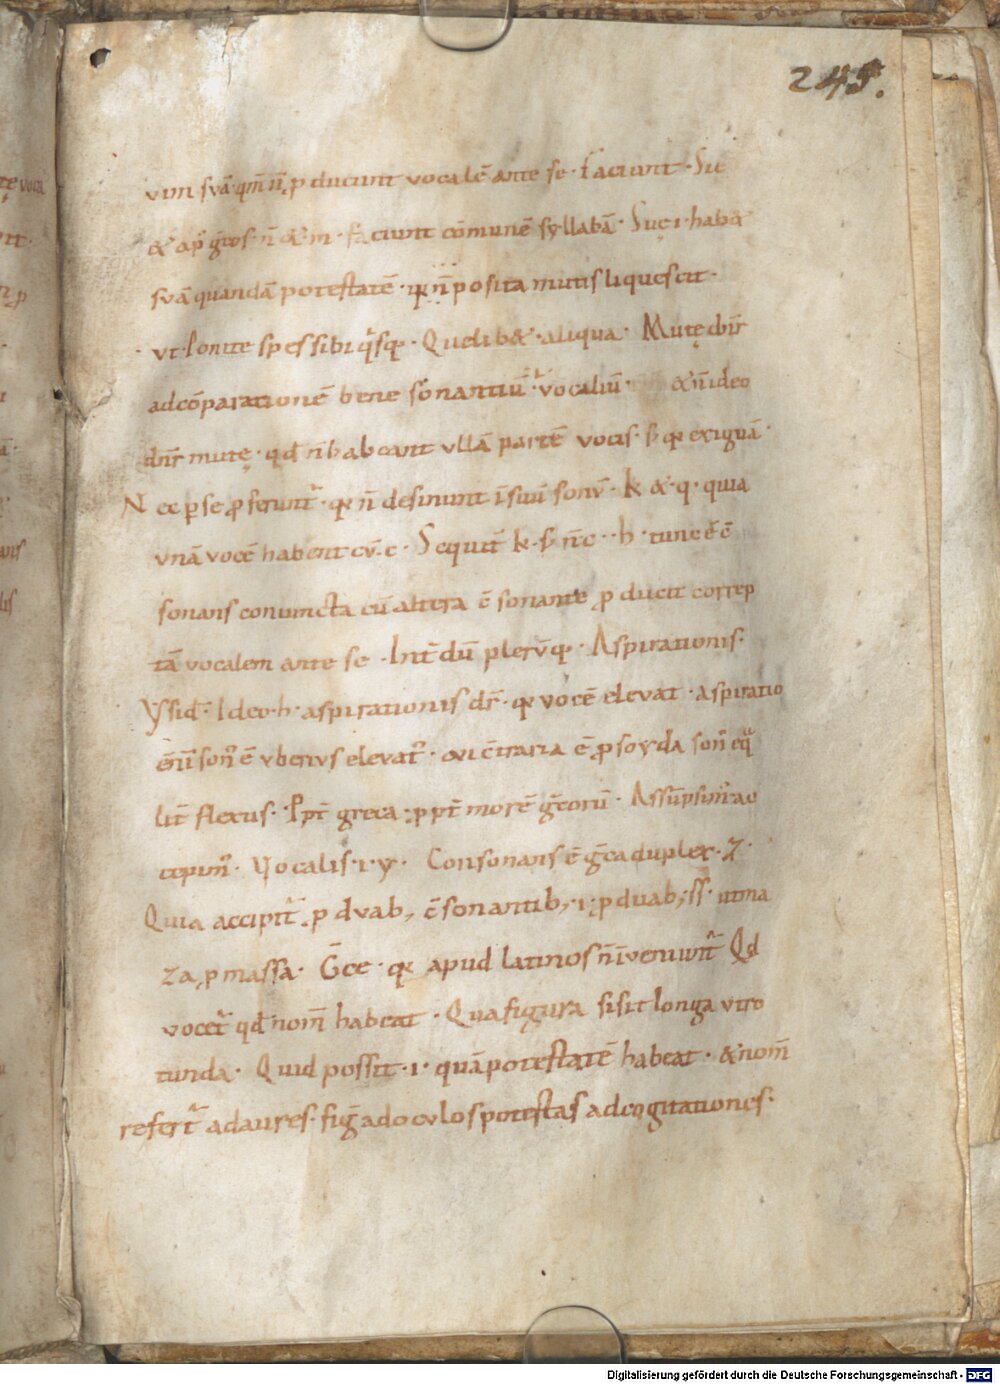 245.
vim suā qm̄ n̄ ꝓducunt vocalē ante se faciunt. Sic
& ap̄ grōs. n̄ & m. faciunt cōmunē syllabā. Suę .i. hab&
suā quandā potestatē. q̄ n̄ posita mutis liquescit.
vt. Ponite spes sibi q̄sq;. Quelib& .aliqua. Mutę dnr̄
ad cōparationē bene sonantiū vocaliū. & n̄ ideo
dnr̄ mutę. qd̄ n̄ habeant ullā partē vocis. s; exiguā.
Nec ꝑ se ꝓferunt̄. n̄ desinunt ī suū sonū. k & .q. quia
vnā vocē habent cū .c. Sequit̄ k. s; n̄ c .. h. tunc ē c̄
sonans coniuncta cū altera c̄sonante ꝓducit correp
tā vocalem ante se. Int̄dū plerūq;. Aspirationis.
Ysid̄. Ideo .h. aspirationis dr̄. vocē elevat. aspiratio
sōn ē vberius elevat̄. c̄traria ē ꝓsoyda
lit̄ flexus. Ppt̄ greca; ppt̄ morē grēcorū. Assūpsim̄ ac
cepim̄. Vocalis .i. y. Consonans ē grēca duplex. z.
Quia accipit̄ ꝓ duab; c̄sonantib; .i. ꝓ duab; ss. ut ma
za, ꝓ massa. Gr̄ce. apud latinos n̄ īveniunt̄ Qd
vocet̄ qd̄ nom̄ habeat. Qua figura si sit longa vt ro
tunda. Quid possit .i. quā potestatē habeat. & nom̄
refert̄ ad aures. fiḡ ad oculos potestas ad cogitationes.
Digitalisierung gefördert durch die Deutsche Forschungsgemeinschaft - DFG